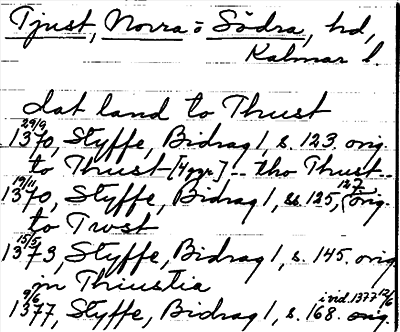 Tjust, Norra o Södra, hd,
Kalmar l.
dat land to Thust
29/9
1370, Styffe, Bidrag 1, s. 123. orig.
to Thust [4 ggr] -- tho Thust --
19/11 127
1370, Styffe, Bidrag 1, ss. 125, orig.
to Twst
15/5
1373, Styffe, Bidrag 1, s. 145. orig
in Thiustia
9/6 ivid. 1377 12/6
1377, Styffe, Bidrag 1, s. 168. orig.